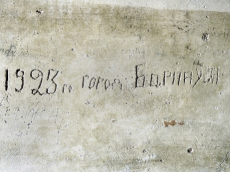 1923 го город Барнаул